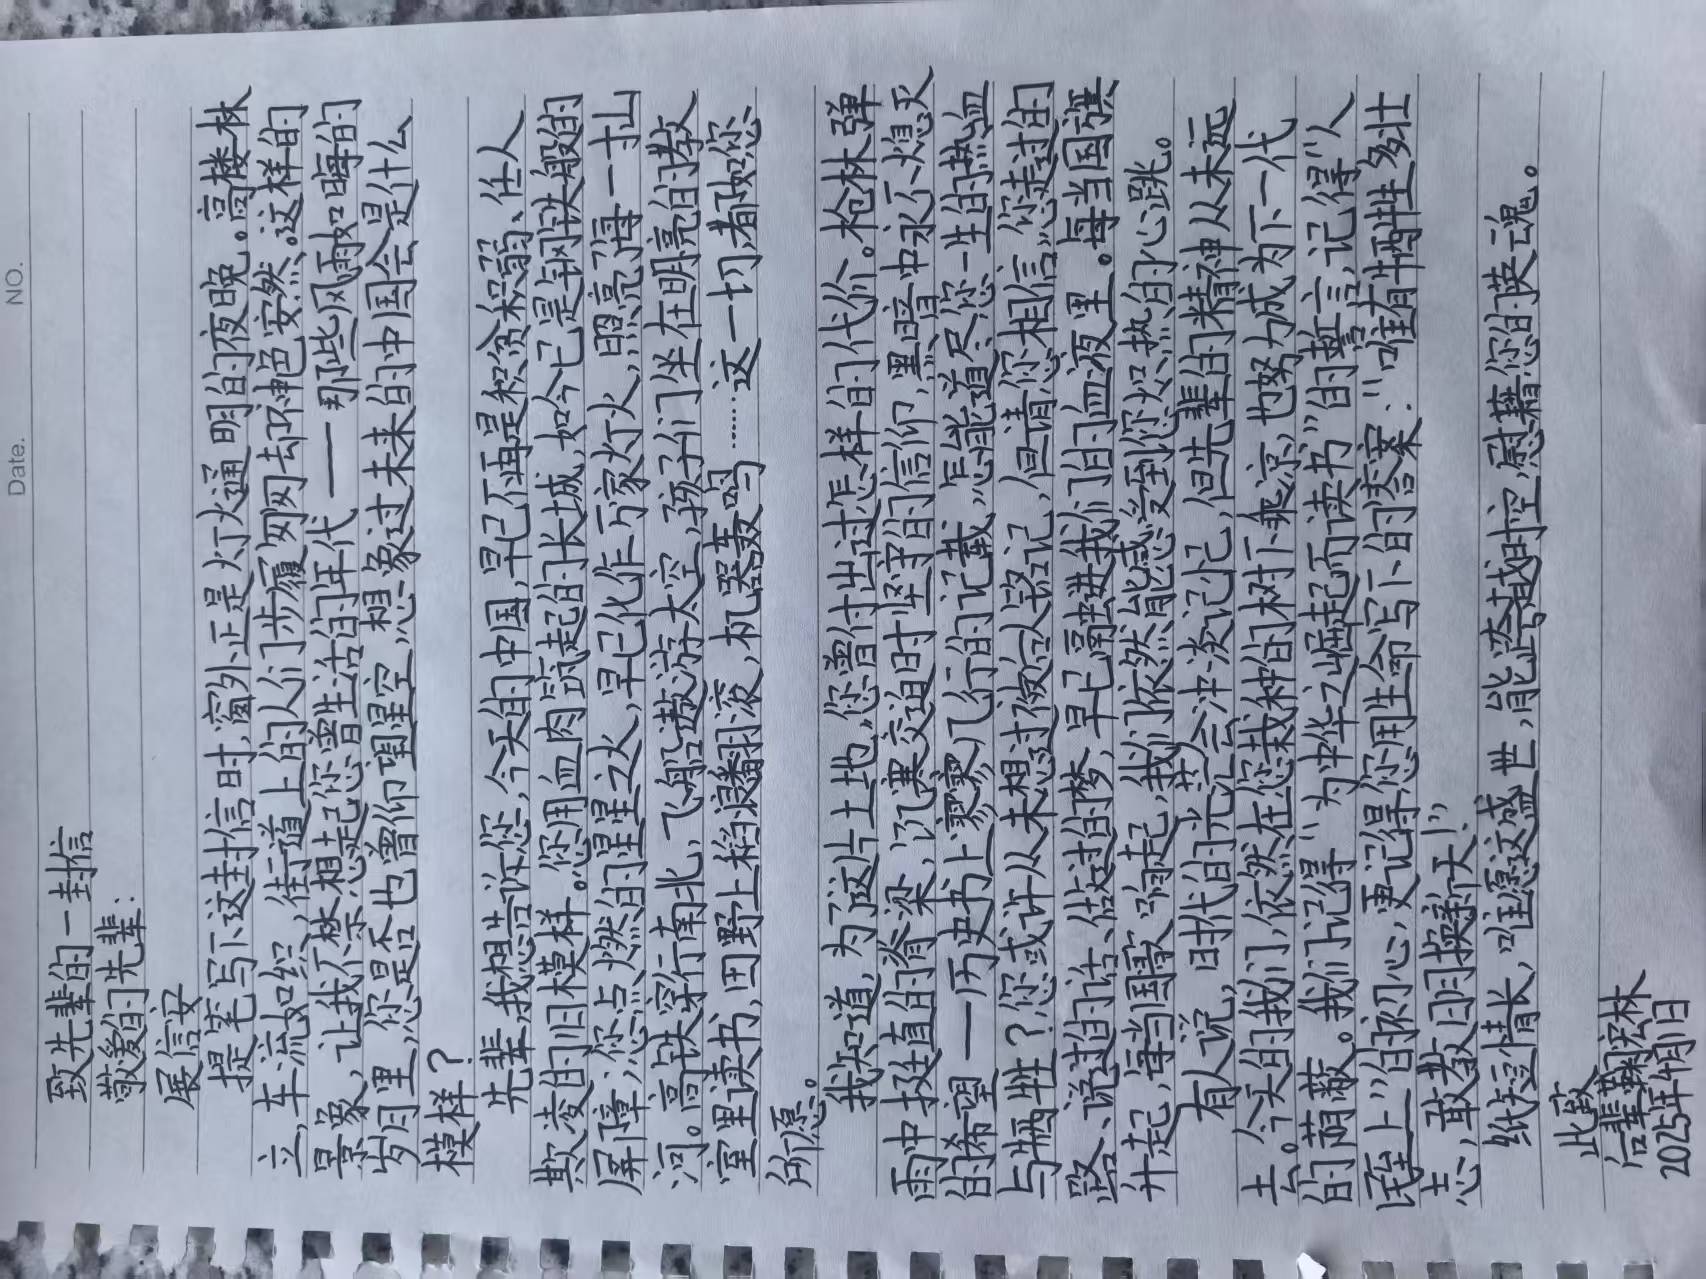 Date.    NO.
致先辈的一封信
敬爱的先辈：
展信安
提笔写下这封信时，窗外正是灯火通明的夜晚。高楼林
立，车流如织，街道上的人们步履匆匆去却神色安然。这样的
景象，让我不禁想起您曾生活的年代——那些风雨如晦的
岁月里，您是否也曾仰望星空，想象过未来的中国会是什么
模样？
先辈，我想告诉您，今天的中国，早已不再是积贫积弱、任人
欺凌的旧模样。您用血肉筑起的长城，如今已是钢铁般的
屏障；您点燃的星星之火，早已化作万家灯火，照亮每一寸山
河。高铁穿行南北，飞船遨游太空，孩子们坐在明亮的教
室里读书，田野上稻浪翻滚，机器轰鸣……这一切，都如您
所愿。
我知道，为了这片土地，您曾付出过怎样的代价。枪林弹
雨中挺直的脊梁，饥寒交迫时坚守的信仰，黑暗中永不熄灭
的希望——历史书上寥寥几行的记载，怎能道尽您一生的热血
与牺牲？您或许从未想过被后人铭记，但请您相信，您走过的
路、说过的话、做过的梦，早已融进我们的血液里。每当国旗
升起，每当国歌响起，我们依然能感受到您炽热的心跳。
有人说，时代的光芒会冲淡记忆，但先辈的精神从未远
去。今天的我们，依然在您栽种的树下乘凉，也努力成为下一代
的荫蔽。我们记得“为中华之崛起而读书”的誓言，记得“人
民至上”的初心，更记得您用生命写下的答案：“唯有牺牲多壮
志，敢教日月换新天！”
纸短情长，唯愿这盛世，能跨越时空，慰藉您的英魂。
此致
2025年4月1日